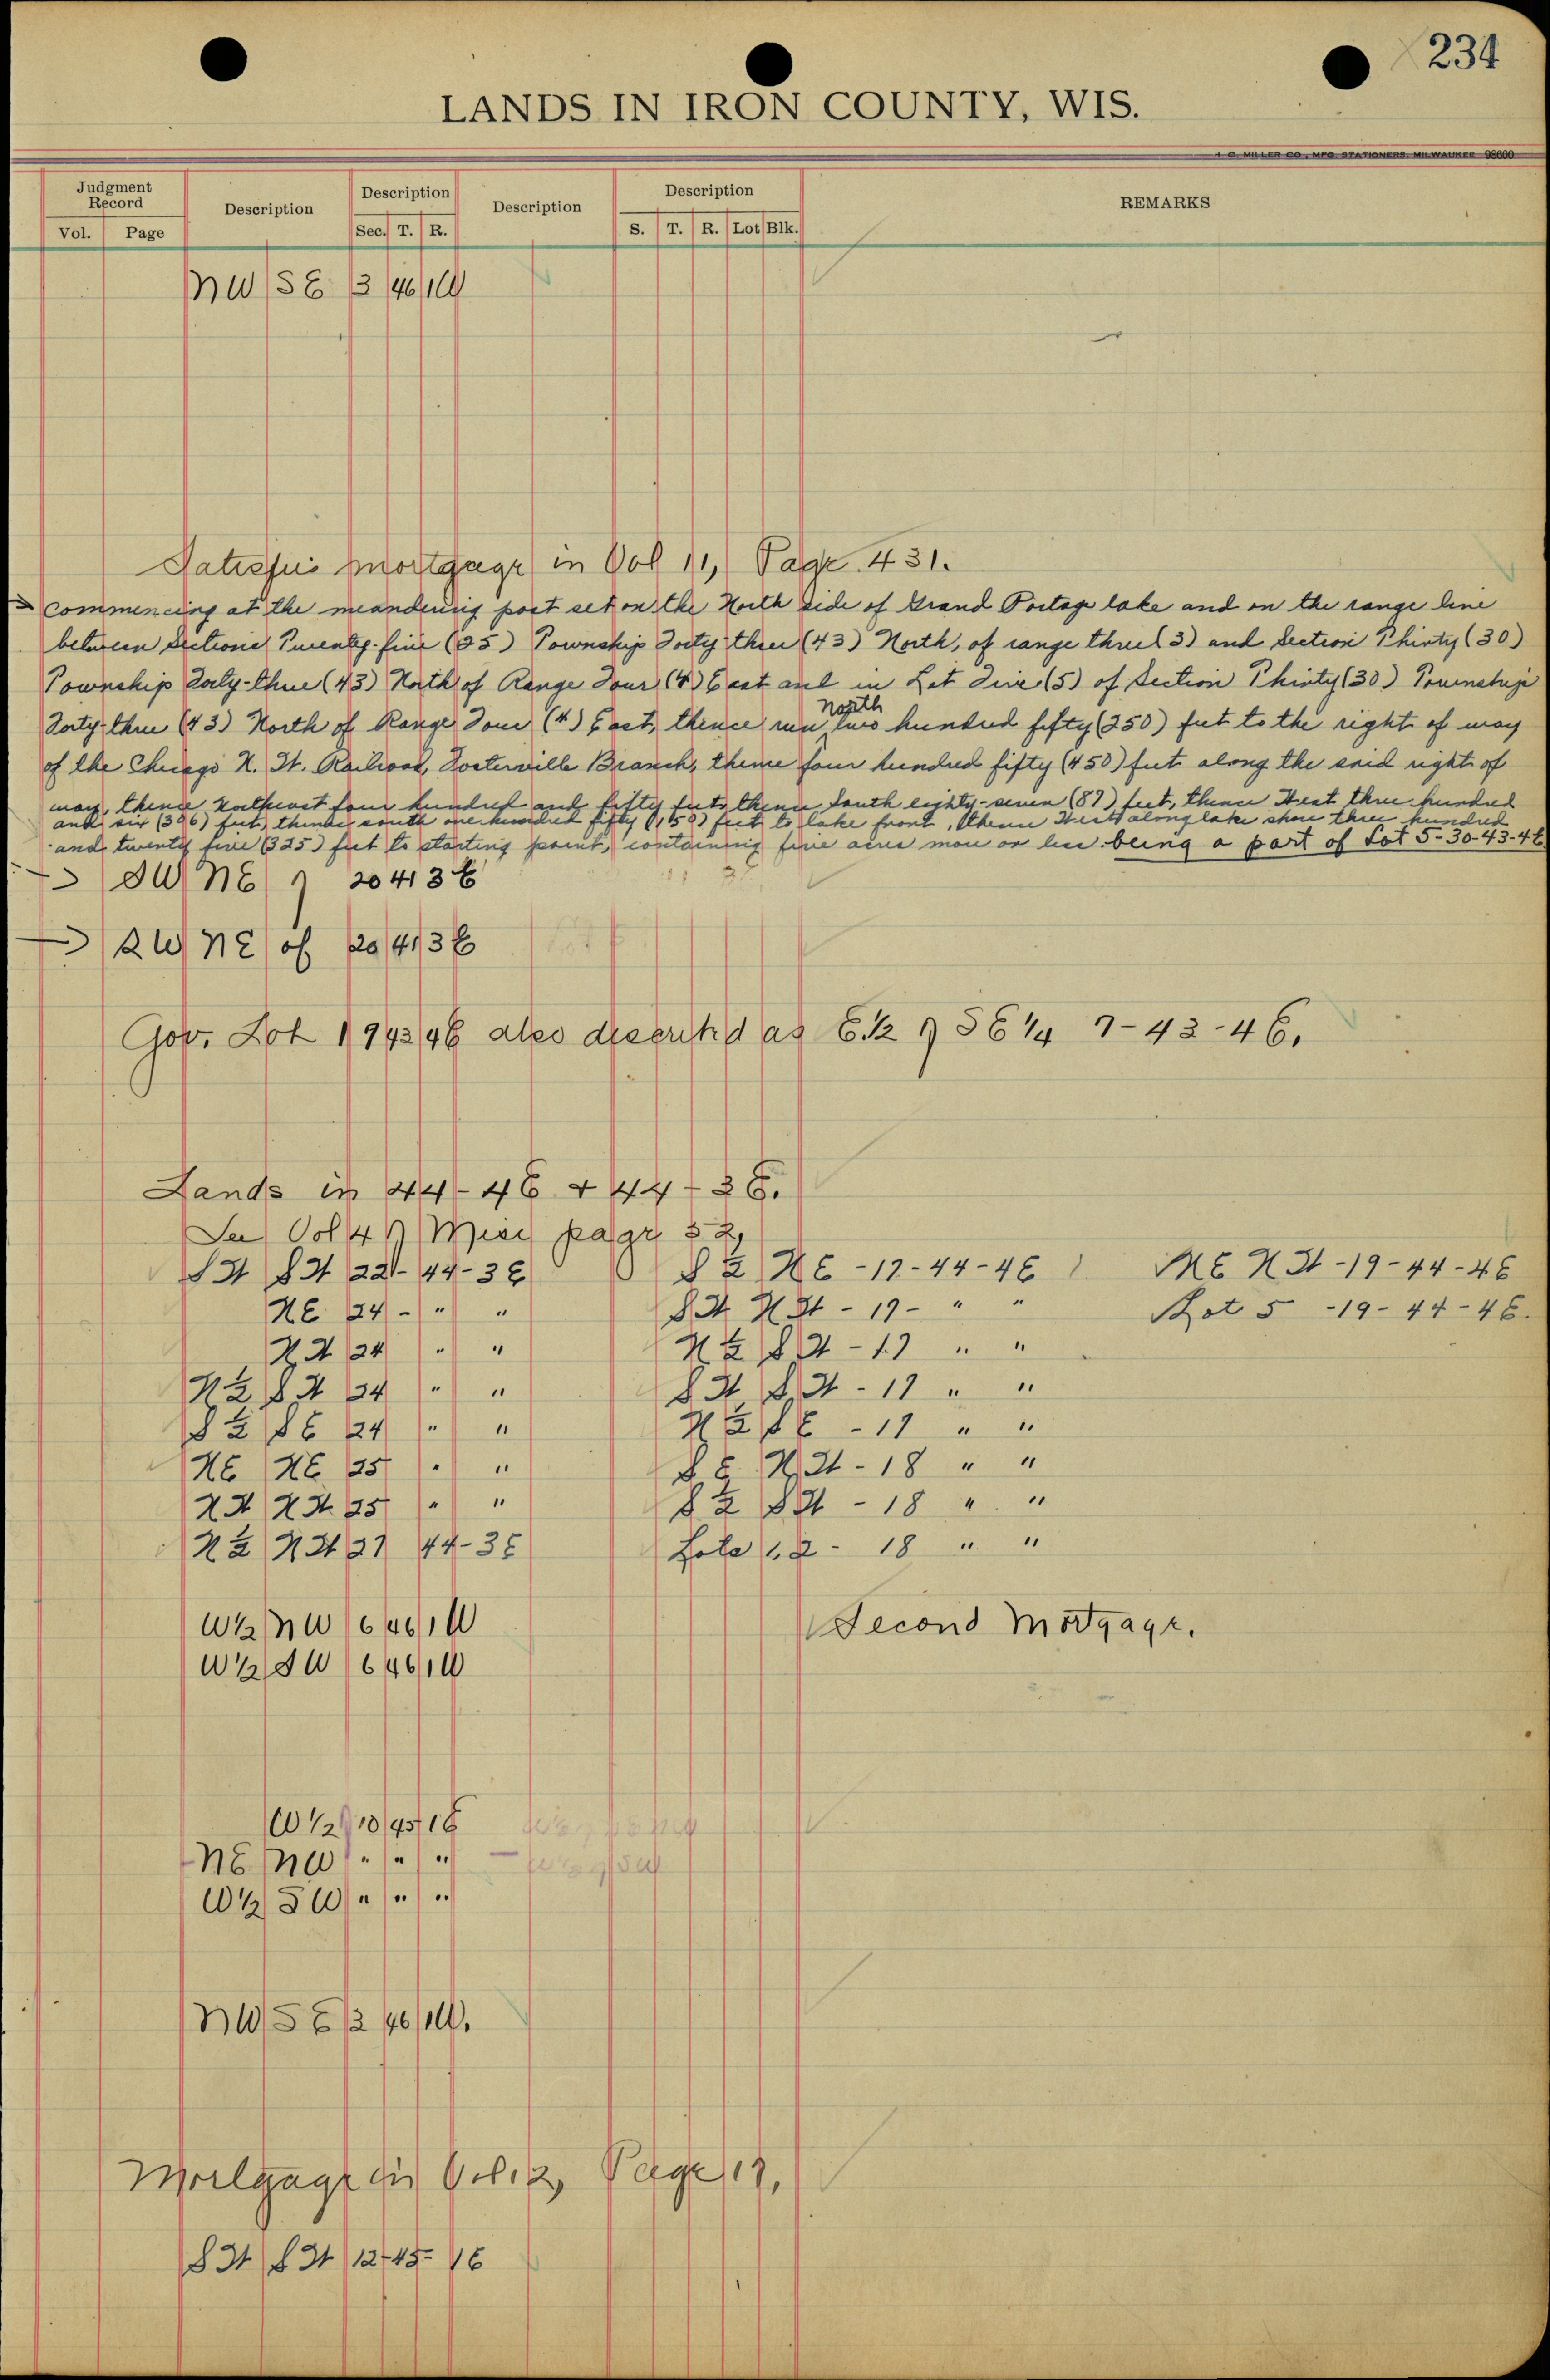 234
LANDS IN IRON COUNTY, WIS.
H. C. MILLER CO., MFG. STATIONERS, MILWAUKEE 98600
Judgment Record
Vol. Page
Description
Description
Sec. T. R.
Description
Description
S. T. R. Lot Blk.
REMARKS
NW SE 3 46 1W
Satisfies mortgage in Vol 11, Page 431.
Commencing at the meandering post set on the North side of Grand Portage lake and on the range line
between Sections Twenty-five (25) Township Forty-three (43) North, of range three (3) and Section Thirty (30)
Township Forty-three (43) North of Range Four (4) East and in Lot Five (5) of Section Thirty (30) Township
Forty-three (43) North of Range Four (4) East, thence run North two hundred fifty (250) feet to the right of way
of the Chicago N. W. Railroad, Branch, thence four hundred fifty (450) feet along the said right of
way, thence four hundred and fifty feet, thence South eighty-seven (87) feet, thence West three hundred
and six (306) feet, thence south one hundred fifty (150) feet to lake front, thence West along lake shore three hundred
and twenty five (325) feet to starting point, containing five acres more or less being a part of Lot 5-30-43-4E
SW NE of 20 41 3E
SW NE of 20 41 3E
Gov. Lot 1 7 43 4E also described as E 1/2 of SE 1/4 7-43-4E.
Lands in 44-4E + 44-3E.
See Vol 4 of Misc page 52,
SW SW 22-44-3E S 2 NE -17-44-4E NE NW -19-44-4E
NE 24 - " " SW NW - 17 - " " Lot 5 -19-44-4E.
NW 24 " " N 2 SW - 17 " "
N 2 SW 24 " " SW SW - 17 " "
S 2 SE 24 " " N 2 SE - 17 " "
NE NE 25 " " SE NW - 18 " "
NW NW 25 " " S 2 SW - 18 " "
N 2 NW 27 44-3E Lots 1, 2 - 18 " "
W 1/2 NW 6 46 1W Second Mortgage.
W 1/2 SW 6 46 1W
W 1/2 10 45 1E
NE NW " " "
W 1/2 SW " " "
NW SE 3 46 1W.
Mortgage in Vol 12, Page 17,
SW SW 12-45-1E